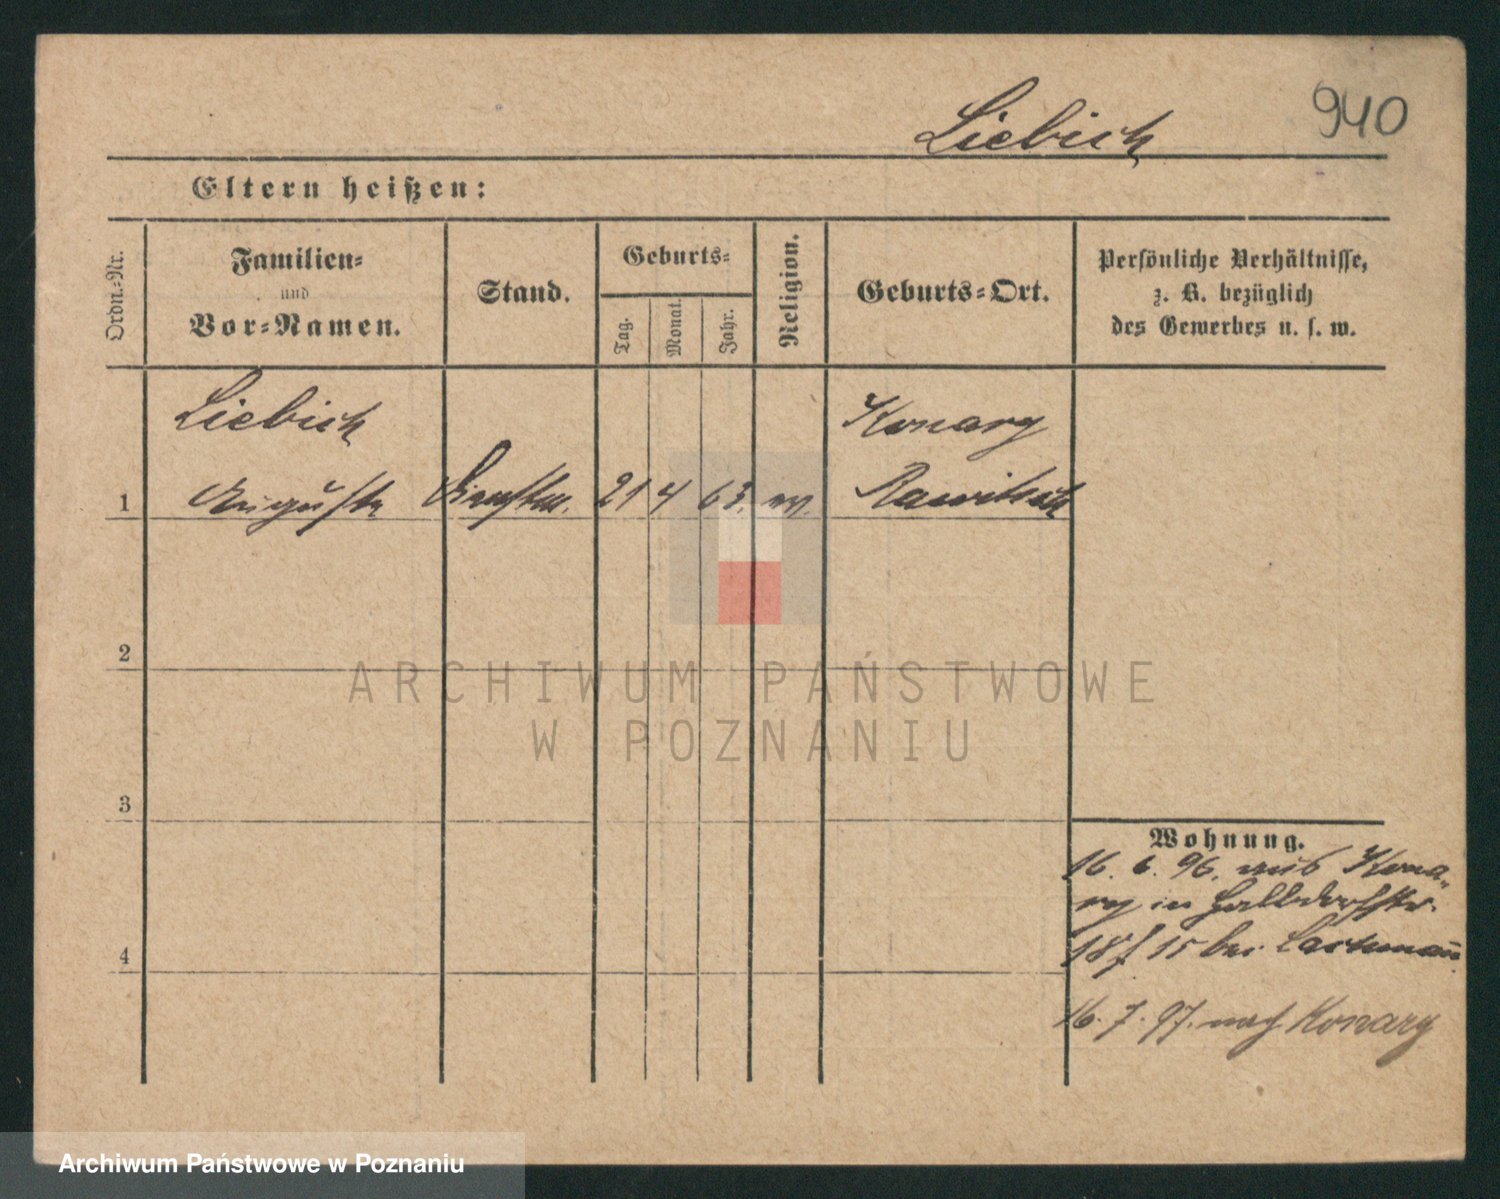 940
Liebich
Eltern heißen:
Ordn.-Nr.
Familien-
und
Vor-Namen.
Stand.
Geburts-
Tag.
Monat.
Jahr.
Religion.
Geburts-Ort.
Persönliche Verhältnisse,
z. B. bezüglich
des Gewerbes u. s. w.
Liebich
Konary
1 Auguste Dienstm. 21 4 63. ev. Rawitsch
2
3
4
Wohnung.
16. 6. 96. aus Kona-
ry in Halbdorfstr.
18 f 15 bei
16. 7. 97. nach Konary
ARCHIWUM PAŃSTWOWE
W POZNANIU
Archiwum Państwowe w Poznaniu